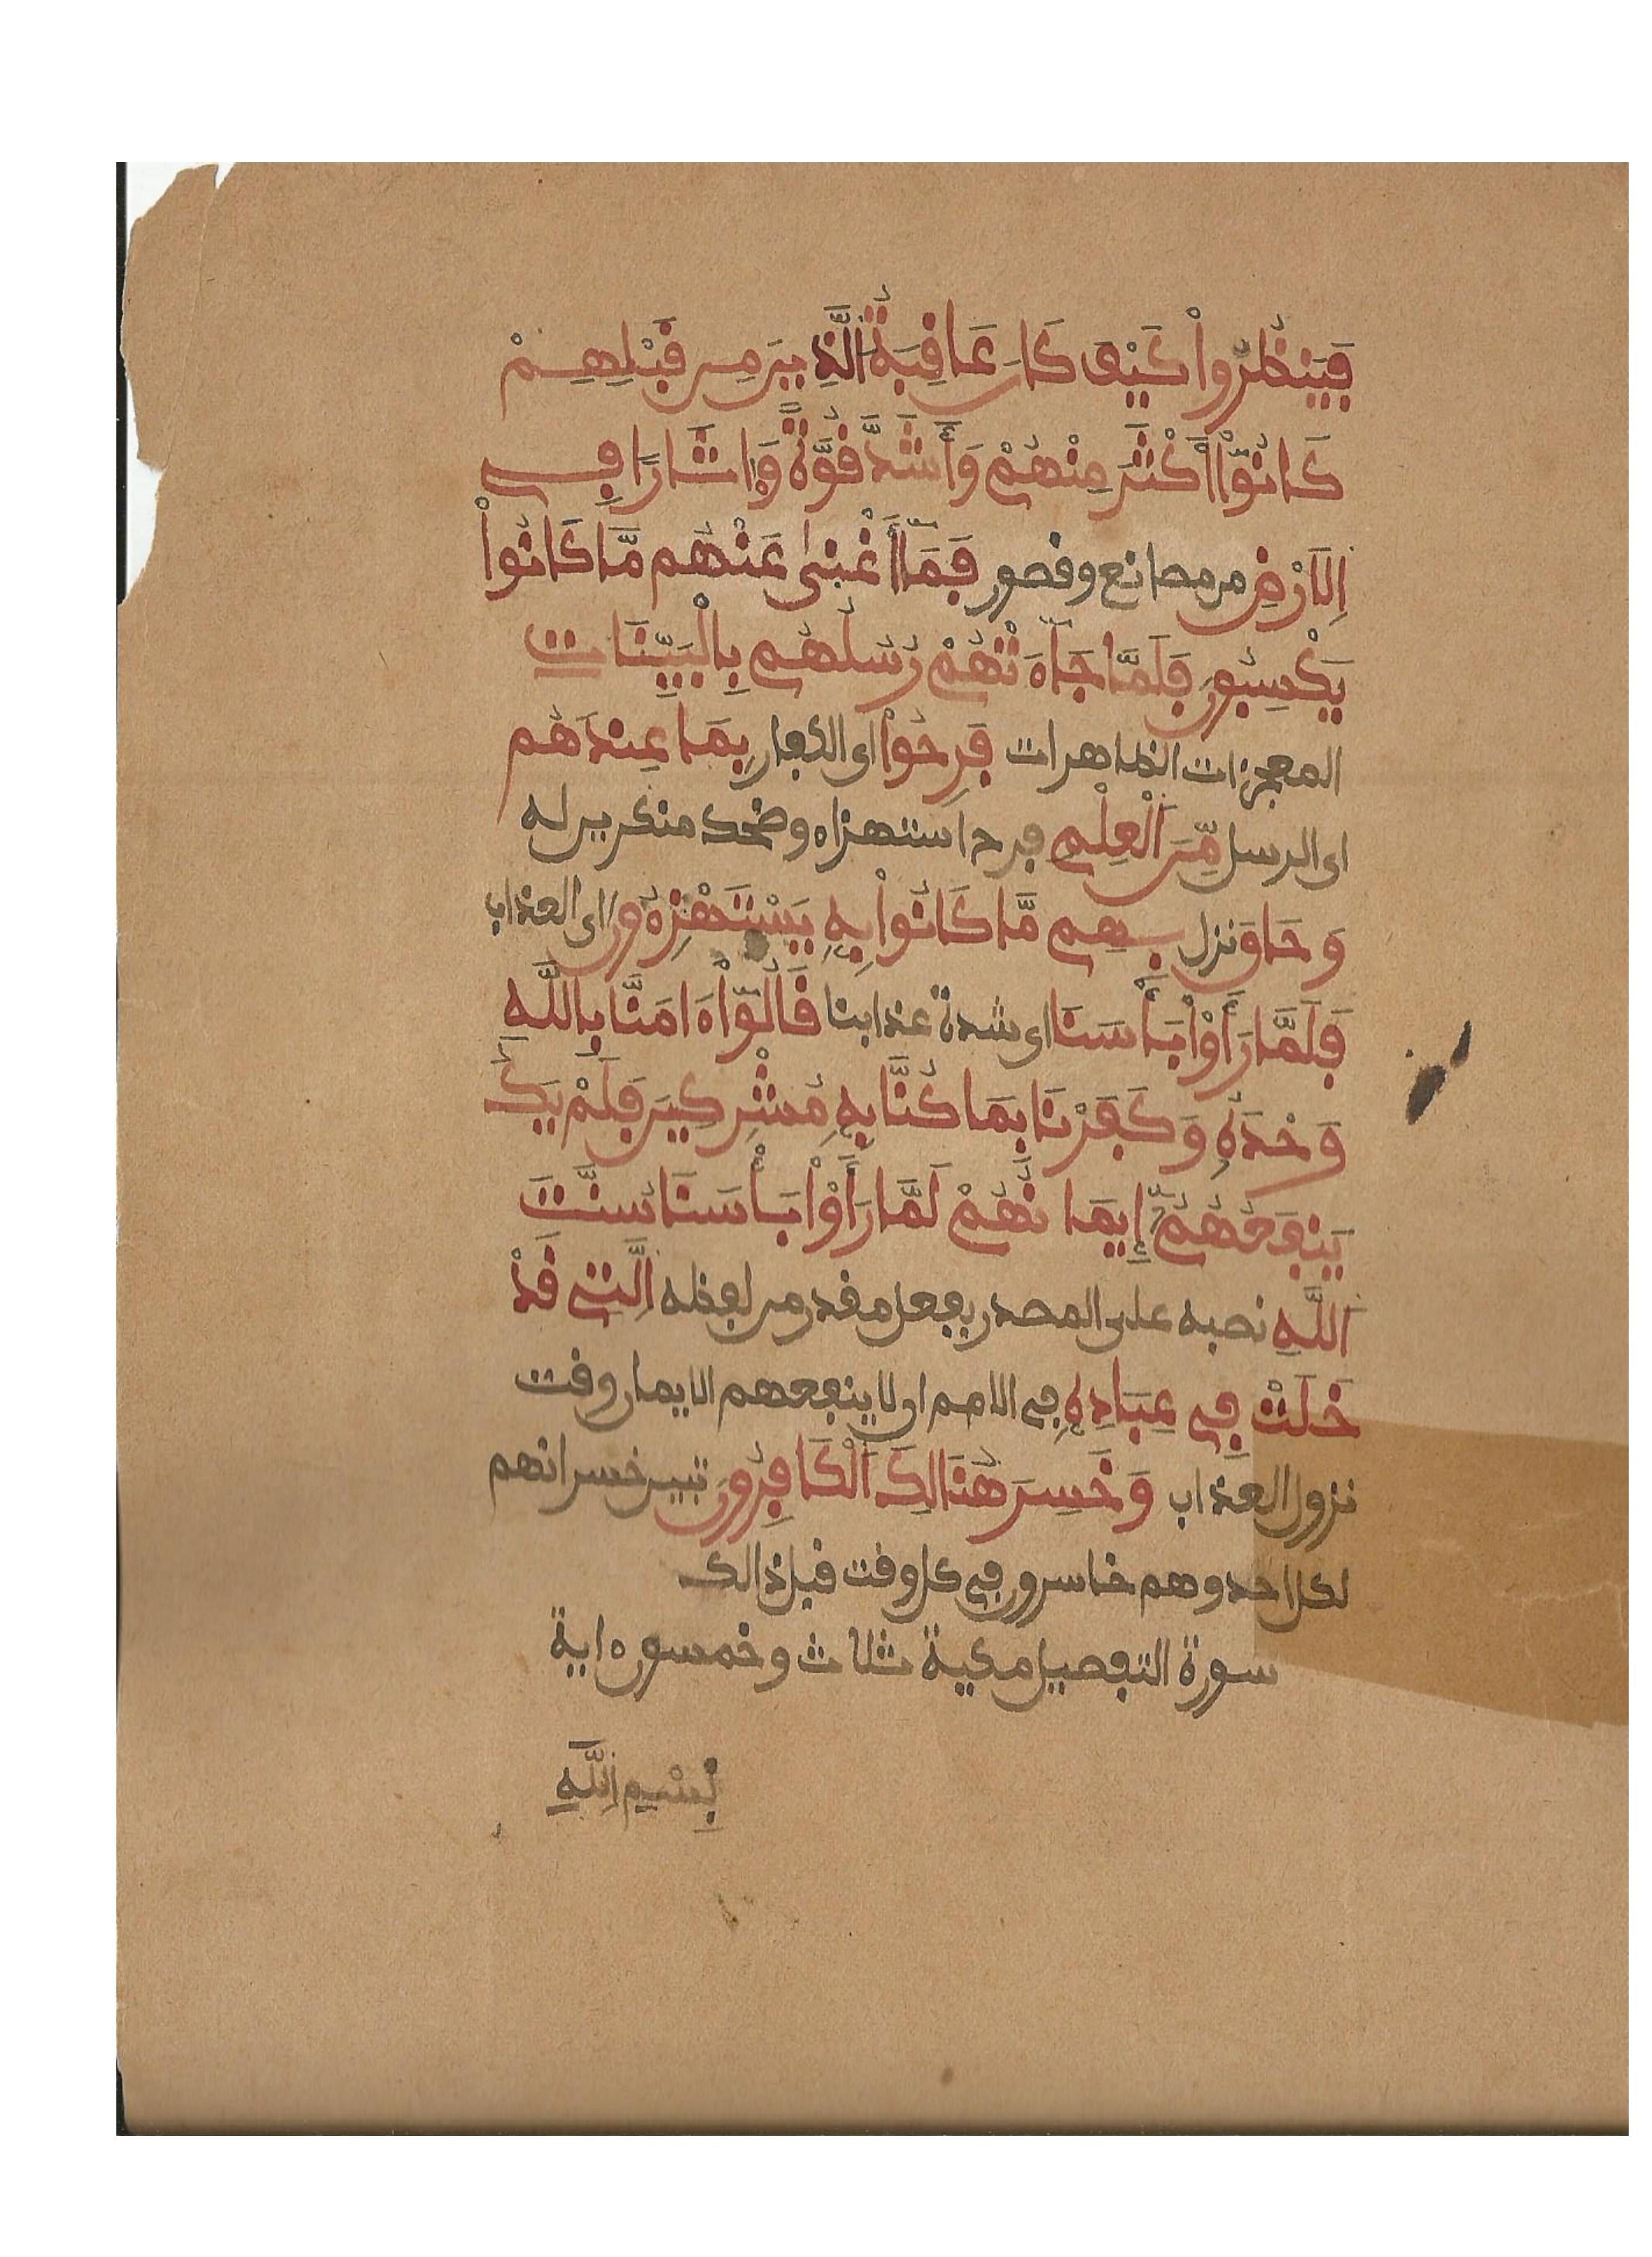 فَيَنظُرُوا۟ كَيْفَ كَانَ عَاقِبَةُ الَّذِينَ مِن قَبْلِهِمْ
كَانُوٓا۟ أَكْثَرَ مِنْهُمْ وَأَشَدَّ قُوَّةً وَءَاثَارًا فِي
اِلَارْضِ من مصانع وقصور فَمَآ أَغْنَىٰ عَنْهُم مَّا كَانُوا۟
يَكْسِبُونَ فَلَمَّا جَآءَتْهُمْ رُسُلُهُم بِالْبَيِّنَاتِ
المعجزات الظاهرات فَرِحُوا۟ اى الكفار بِمَا عِندَهُم
اى الرسل مِّنَ اَلْعِلْمِ فرح استهزاء وضحك منكرين له
وَحَاقَ نزل بِهِم مَّا كَانُوا۟ بِهِ يَسْتَهْزِءُونَ اى العذاب
فَلَمَّا رَأَوْا۟ بَأْسَنَا اى شدة عذابنا قَالُوٓا۟ ءَامَنَّا بِاللَّهِ
وَحْدَهُ وَكَفَرْنَا بِمَا كُنَّا بِهِ مُشْرِكِينَ فَلَمْ يَكُ
يَنفَعُهُمُۥٓ إِيمَانُهُمْ لَمَّا رَأَوْا۟ بَأْسَنَا سُنَّتَ
اَللَّهِ نصبه على المصدر بفعل مقدر من لفظه اِلَّتِي قَدْ
خَلَتْ فِي عِبَادِهِ في الامم ان لا ينفعهم الايمان وقت
نزول العذاب وَخَسِرَ هُنَالِكَ اَلْكَافِرُونَ تبين خسرانهم
لكل احد وهم خاسرون في كل وقت قبل ذالك
سورة التفصيل مكية ثلاث وخمسون ءاية
بِسْمِ اِللَّهِ